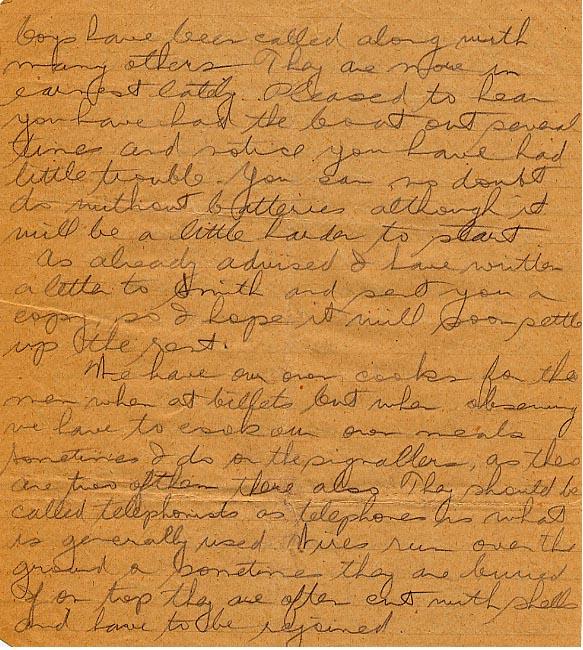 boys have been called along with
many others They are now in
earnest lately. Pleased to hear
you have had the boat out several
times and notice you have had
little trouble. You can no doubt
do without batteries although it
will be a little harder to start
As already advised I have written
a letter to Smith and sent you a
copy, so I hope it will soon settle
up the rest.
We have our own cooks for the
men when at billets but when observing
we have to cook our own meals
sometimes I do or the signallers, as there
are two of them there also They should be
called telephonists as telephones is what
is generally used Wires run over the
ground or sometimes they are buried
If on top they are often cut with shells
and have to be rejoined